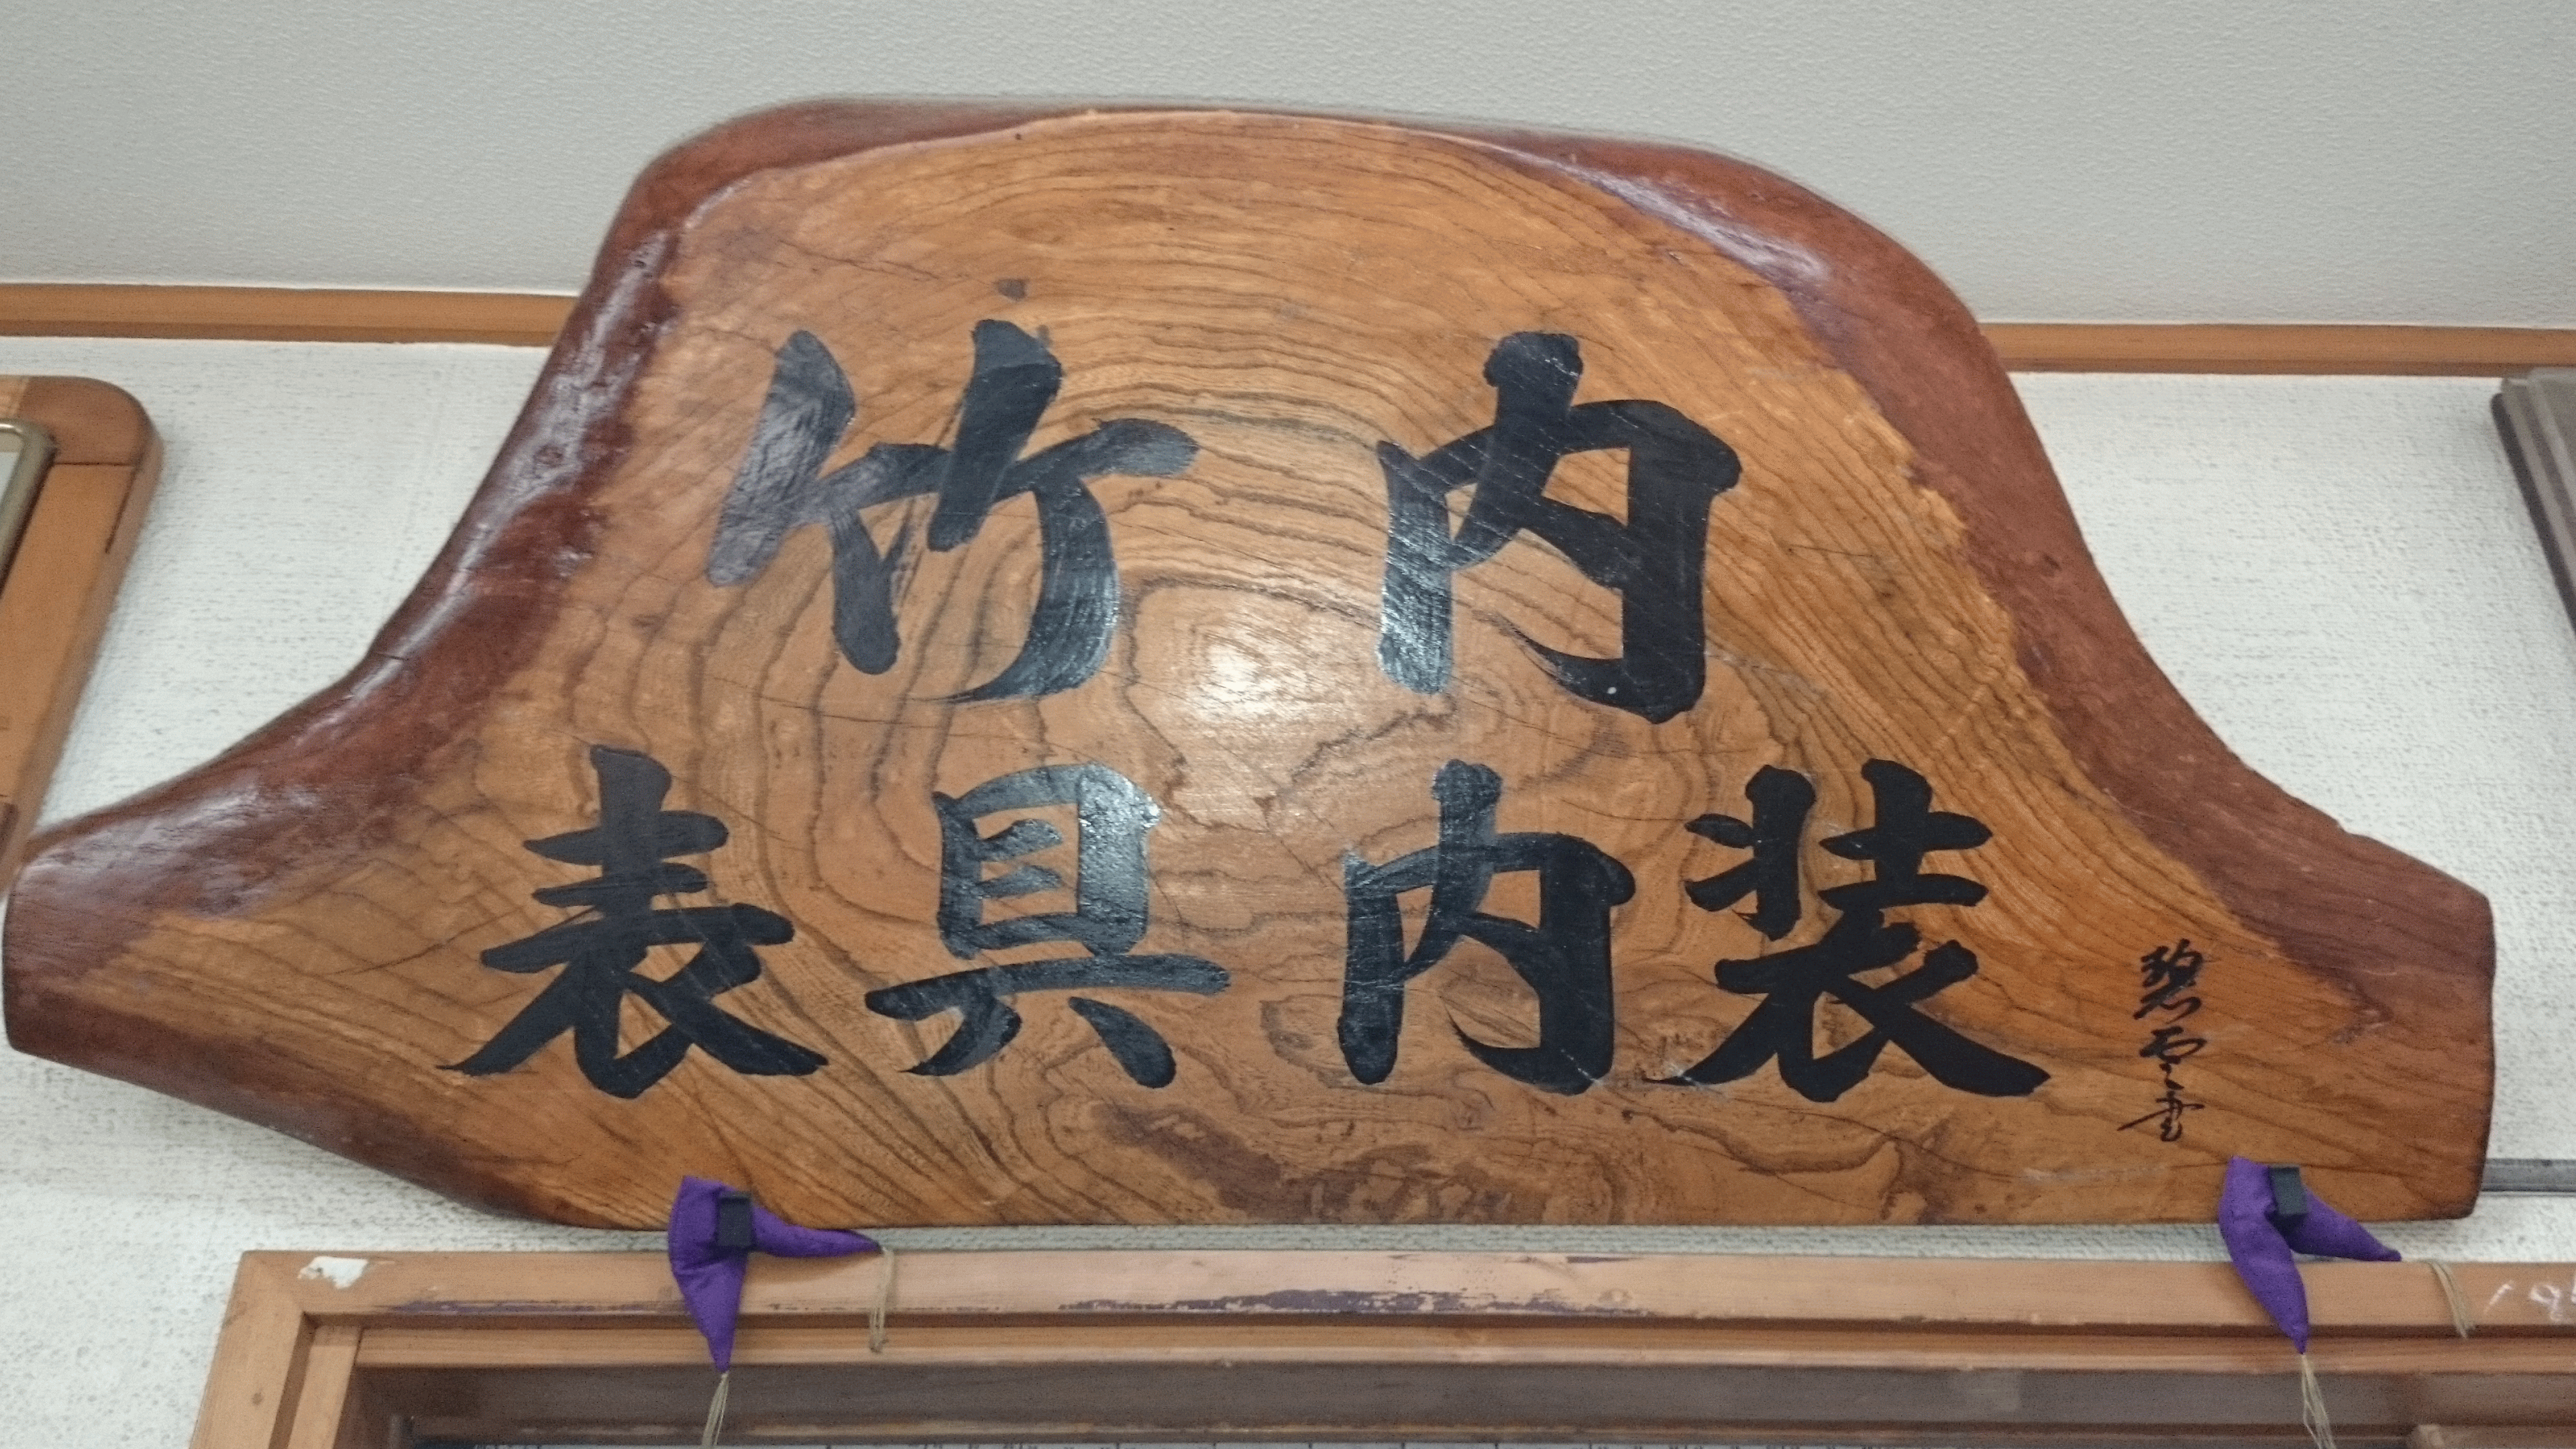 竹内
表具内装
碧雲書